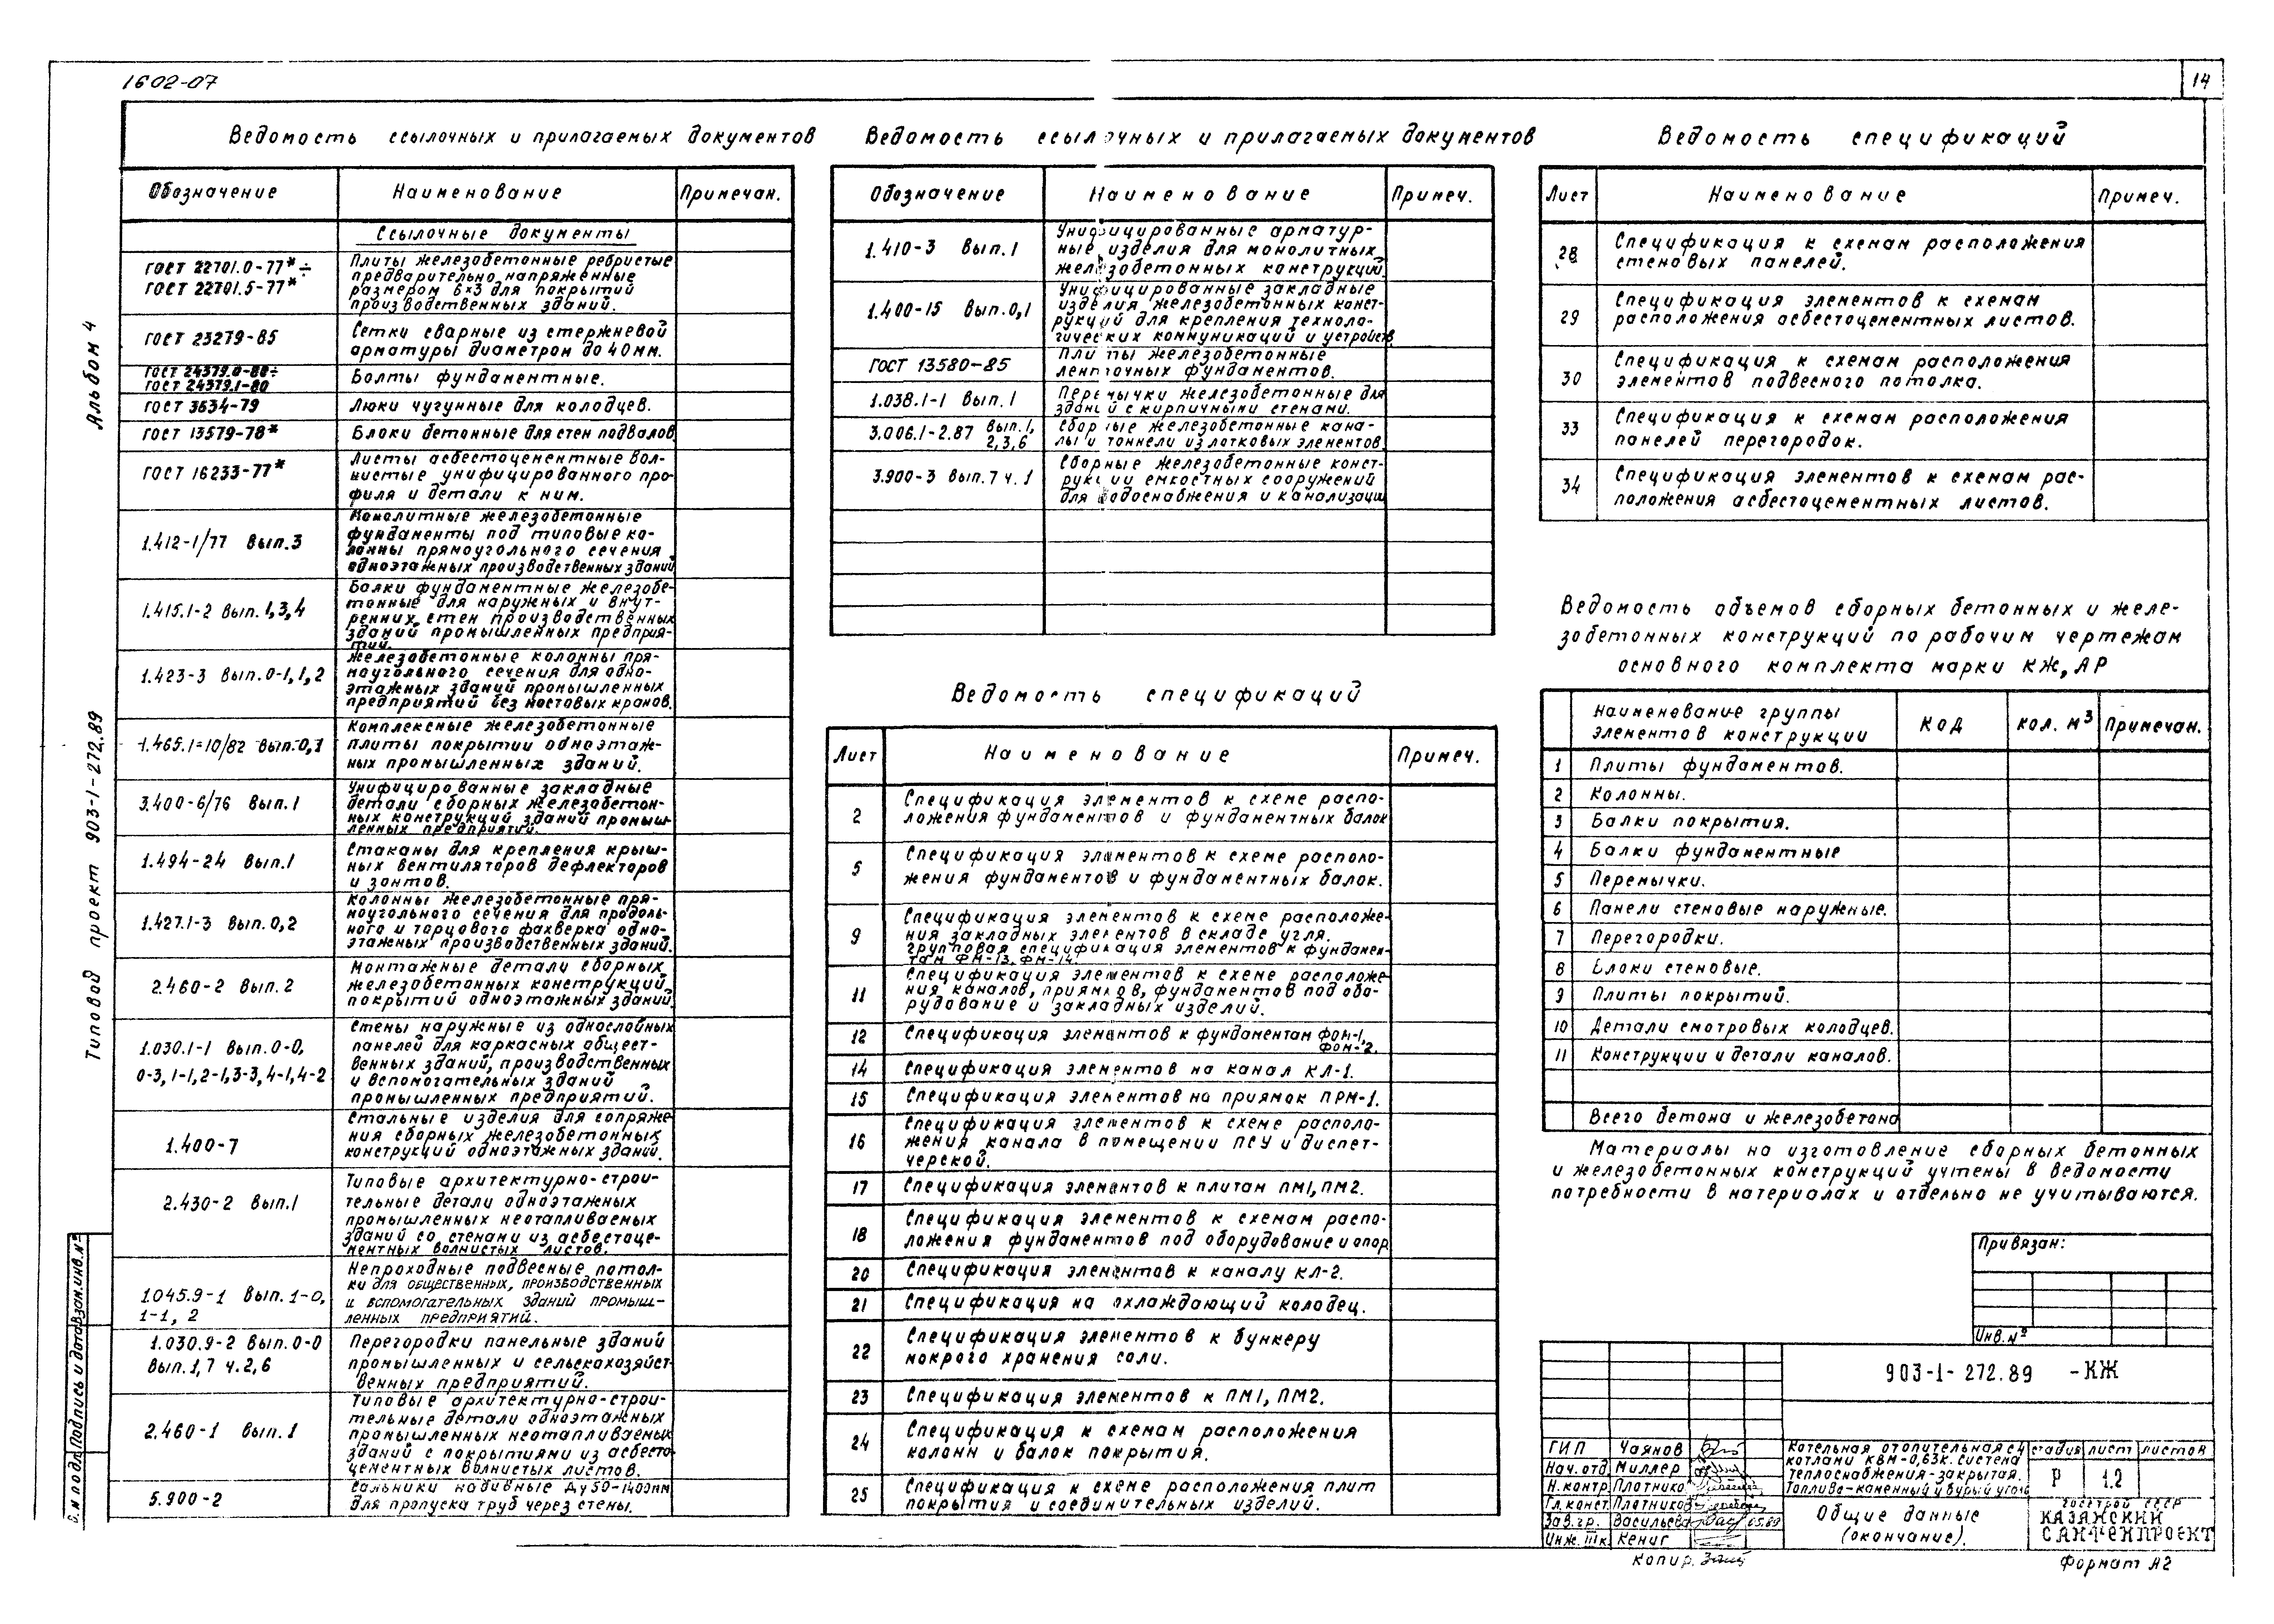 1602-07
14
Альбом 4
Типовой проект 903-1-272.89
Ведомость ссылочных и прилагаемых документов
Обозначение Наименование Примечан.
Ссылочные документы
ГОСТ 22701.0-77*÷
ГОСТ 22701.5-77*
Плиты железобетонные ребристые
предварительно напряженные
размером 6×3 для покрытий
производственных зданий.
ГОСТ 23279-85
Сетки сварные из стержневой
арматуры диаметром до 40мм.
ГОСТ 24379.0-80÷
ГОСТ 24379.1-80
Болты фундаментные.
ГОСТ 3634-79 Люки чугунные для колодцев.
ГОСТ 13579-78* Блоки бетонные для стен подвалов
ГОСТ 16233-77*
Листы асбестоцементные вол-
нистые унифицированного про-
филя и детали к ним.
1.412-1/77 Вып.3
Монолитные железобетонные
фундаменты под типовые ко-
лонны прямоугольного сечения
одноэтажных производственных зданий
1.415.1-2 Вып. 1,3,4
Балки фундаментные железобе-
тонные для наружных и внут-
ренних стен производственных
зданий промышленных предприя-
тий.
1.423-3 Вып. 0-1,1,2
Железобетонные колонны пря-
моугольного сечения для одно-
этажных зданий промышленных
предприятий без мостовых кранов.
1.465.1-10/82 Вып.0,1
Комплексные железобетонные
плиты покрытий одноэтаж-
ных промышленных зданий.
3.400-6/76 Вып. 1
Унифицированные закладные
детали сборных железобетон-
ных конструкций зданий промыш-
ленных предприятий.
1.494-24 Вып.1
Стаканы для крепления крыш-
ных вентиляторов дефлекторов
и зонтов.
1.427.1-3 Вып.0,2
Колонны железобетонные пря-
моугольного сечения для продоль-
ного и торцового фахверка одно-
этажных производственных зданий.
2.460-2 Вып. 2
Монтажные детали сборных
железобетонных конструкций
покрытий одноэтажных зданий.
1.030.1-1 Вып. 0-0,
0-3, 1-1, 2-1, 3-3, 4-1, 4-2
Стены наружные из однослойных
панелей для каркасных общест-
венных зданий, производственных
и вспомогательных зданий
промышленных предприятий.
1.400-7
Стальные изделия для сопряже-
ния сборных железобетонных
конструкций одноэтажных зданий.
2.430-2 Вып.1
Типовые архитектурно-строи-
тельные детали одноэтажных
промышленных неотапливаемых
зданий со стенами из асбестоце-
ментных волнистых листов.
1.045.9-1 Вып. 1-0,
1-1, 2
Непроходные подвесные потол-
ки для общественных, производственных
и вспомогательных зданий промыш-
ленных предприятий.
1.030.9-2 Вып. 0-0
Вып. 1, 7 ч.2,6
Перегородки панельные зданий
промышленных и сельскохозяйст-
венных предприятий.
2.460-1 Вып. 1
Типовые архитектурно-строи-
тельные детали одноэтажных
промышленных неотапливаемых
зданий с покрытиями из асбесто-
цементных волнистых листов.
5.900-2
Сальники набивные Ду50-1400мм
для пропуска труб через стены.
Ведомость ссылочных и прилагаемых документов
Обозначение Наименование Примеч.
1.410-3 Вып.1
Унифицированные арматур-
ные изделия для монолитных
железобетонных конструкций.
1.400-15 Вып.0,1
Унифицированные закладные
изделия железобетонных конст-
рукций для крепления техноло-
гических коммуникаций и устройств
ГОСТ 13580-85
Плиты железобетонные
ленточных фундаментов.
1.038.1-1 Вып. 1
Перемычки железобетонные для
зданий с кирпичными стенами.
3.006.1-2.87 Вып. 1,
2,3,6
Сборные железобетонные кана-
лы и тоннели из лотковых элементов
3.900-3 Вып. 7 ч. 1
Сборные железобетонные конст-
рукции емкостных сооружений
для водоснабжения и канализации
Ведомость спецификаций
Лист Наименование Примеч.
2 Спецификация элементов к схеме распо-
ложения фундаментов и фундаментных балок
5 Спецификация элементов к схеме располо-
жения фундаментов и фундаментных балок.
9 Спецификация элементов к схеме расположе-
ния закладных элементов в складе угля.
групповая спецификация элементов к фундамен-
там ФМ-13, ФМ-14.
11 Спецификация элементов к схеме расположе-
ния каналов, приямков, фундаментов под обо-
рудование и закладных изделий.
12 Спецификация элементов к фундаментам ФОМ-1,
ФОМ-2.
14 Спецификация элементов на канал КЛ-1.
15 Спецификация элементов на приямок ПРМ-1.
16 Спецификация элементов к схеме располо-
жения канала в помещении ПСУ и диспет-
черской.
17 Спецификация элементов к плитам ПМ1, ПМ2.
18 Спецификация элементов к схемам распо-
ложения фундаментов под оборудование и опор
20 Спецификация элементов к каналу КЛ-2.
21 Спецификация на охлаждающий колодец.
22 Спецификация элементов к бункеру
мокрого хранения соли.
23 Спецификация элементов к ПМ1, ПМ2.
24 Спецификация к схемам расположения
колонн и балок покрытия.
25 Спецификация к схеме расположения плит
покрытия и соединительных изделий.
Ведомость спецификаций
Лист Наименование Примеч.
28 Спецификация к схемам расположения
стеновых панелей.
29 Спецификация элементов к схемам
расположения асбестоцементных листов.
30 Спецификация к схемам расположения
элементов подвесного потолка.
33 Спецификация к схемам расположения
панелей перегородок.
34 Спецификация элементов к схемам рас-
положения асбестоцементных листов.
Ведомость объемов сборных бетонных и желе-
зобетонных конструкций по рабочим чертежам
основного комплекта марки КЖ, АР
Наименование группы
элементов конструкции
Код кол. м³ Примечан.
1 Плиты фундаментов.
2 Колонны.
3 Балки покрытия.
4 Балки фундаментные
5 Перемычки.
6 Панели стеновые наружные.
7 Перегородки.
8 Блоки стеновые.
9 Плиты покрытий.
10 Детали смотровых колодцев.
11 Конструкции и детали каналов.
Всего бетона и железобетона
Материалы на изготовление сборных бетонных
и железобетонных конструкций учтены в ведомости
потребности в материалах и отдельно не учитываются.
Привязан:
Инв.№
903-1-272.89 -КЖ
ГИП Чаянов
Нач. отд Миллер
Н.контр Плотнико
Гл.конст. Плотников
Зав.гр. Васильева 05.89
Инж. IIIк. Кениг
Котельная отопительная с 4
котлами КВм-0,63к. система
теплоснабжения-закрытая.
Топливо-каменный и бурый уголь
стадия лист листов
Р 1.2
Общие данные
(окончание).
Госстрой СССР
КАЗАНСКИЙ
САНТЕХПРОЕКТ
Копир.
Формат А2
Подпись и дата Взам.инв.№